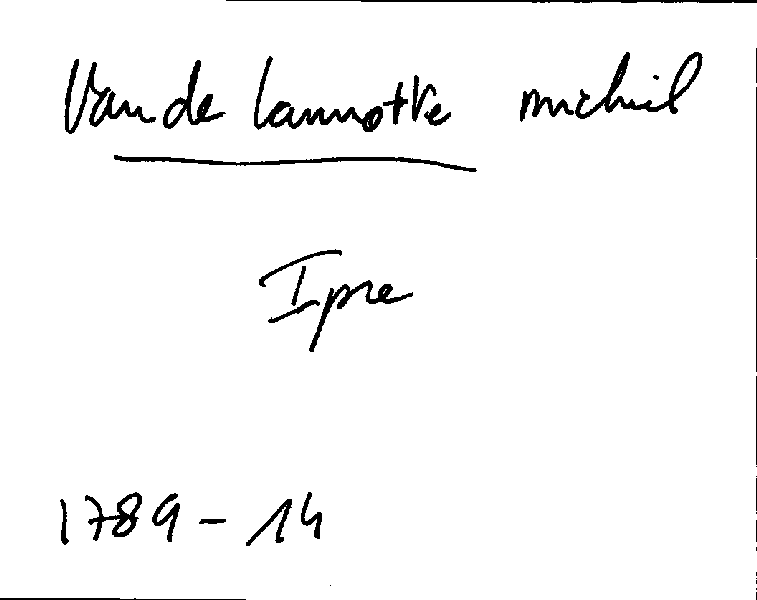 Van de Lannotte michiel
Ipre
1789-14